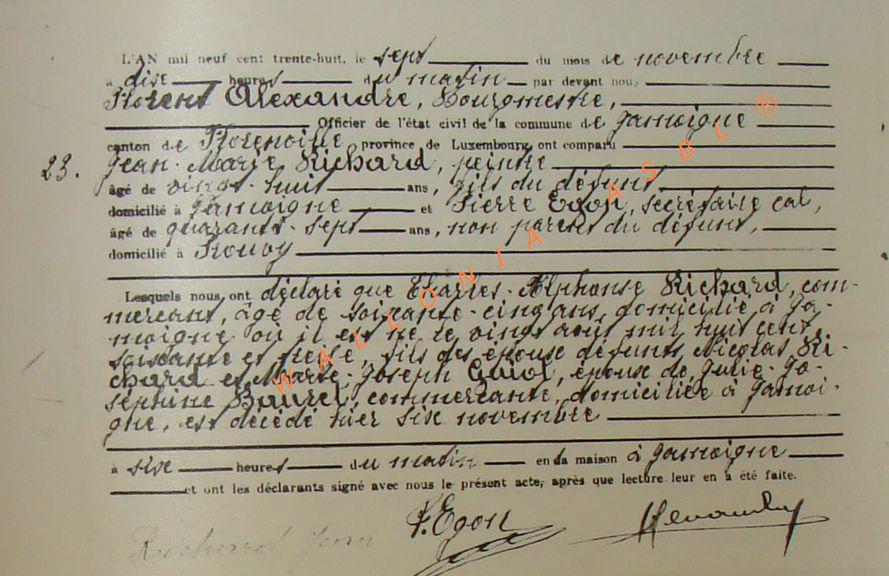 L'AN mil neuf cent trente-huit, le sept du mois de novembre
à dixe heures du matin par devant nous
Florent Alexandre, Bourgmestre,
Officier de l'état civil de la commune de Jamoigne
canton de Florenville, province de Luxembourg ont comparu
23. Jean-Marie Richard, peintre
âgé de vingt-huit ans, fils du défunt
domicilié à Jamoigne et Pierre Egon, secrétaire cal,
âgé de quarante-sept ans, non parent du défunt,
domicilié à Prouvy
Lesquels nous ont déclaré que Charles-Alphonse Richard, com-
merçant, âgé de soixante-cinq ans, domicilié à Ja-
moigne où il est né le vingt août mil huit cent
soixante et treize, fils des épouse défunts Nicolas Ri-
chard et Marie-Joseph Guiot, épouse de Julie-Jo-
séphine Bauret, commerçante, domiciliée à Jamoi-
gne, est décédé hier sixe novembre
à sixe heures du matin en sa maison à Jamoigne
et ont les déclarants signé avec nous le présent acte, après que lecture leur en a été faite.
Richard Jean P. Egon
WALLONIA ASBL ®